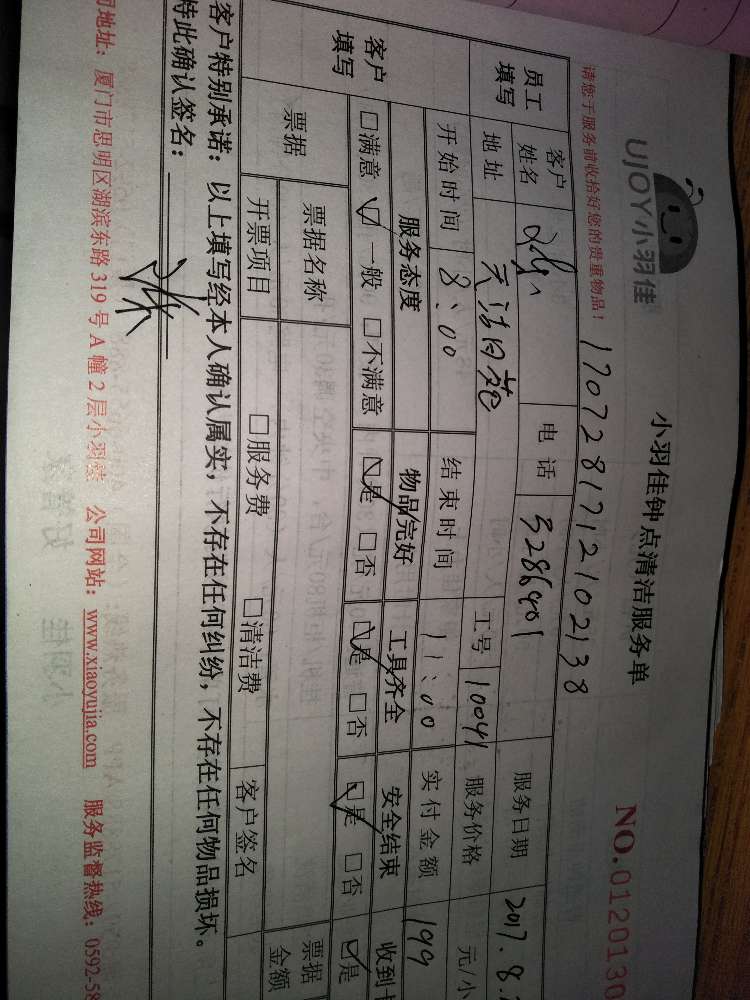 UJOY小羽佳
小羽佳钟点清洁服务单
NO.0120130
请您于服务前收拾好您的贵重物品!
1707281712102138
员工填写 客户姓名 电话 3286401 服务日期 2017.8.
地址 天湖日苑 工号 10041 服务价格 元/小
客户填写 开始时间 8:00 结束时间 11:00 实付金额 199
服务态度 物品完好 工具齐全 安全结束 收到
□满意 ☑一般 □不满意 ☑是 □否 ☑是 □否 ☑是 □否 ☑是
票据 票据名称 票据金额
开票项目 □服务费 □清洁费 客户签名
客户特别承诺:以上填写经本人确认属实,不存在任何纠纷,不存在任何物品损坏。
特此确认签名:
司地址:厦门市思明区湖滨东路319号A幢2层小羽佳 公司网站:www.xiaoyujia.com 服务监督热线:0592-58